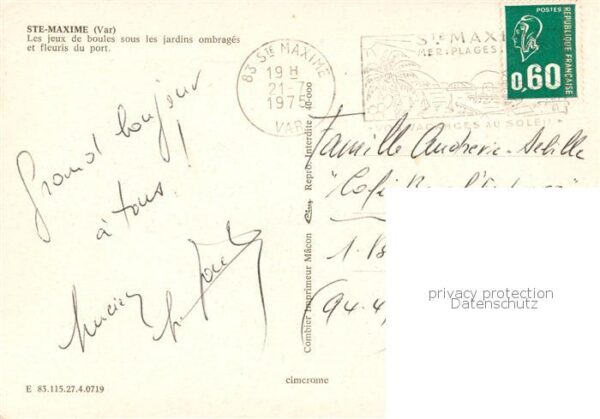 STE-MAXIME (Var)
Les jeux de boules sous les jardins ombragés
et fleuris du port.
83 STE MAXIME
19 H
21-7
1975
VAR
STE MAXIME
MER-PLAGES
VACANCES AU SOLEIL
POSTES
0,60
REPUBLIQUE FRANÇAISE
Grand bonjour
à tous !
Lucien
Famille
"Café
1.
(94.4
Combier Imprimeur Mâcon Repro. Interdite 40-000
privacy protection
Datenschutz
cimcrome
E 83.115.27.4.0719